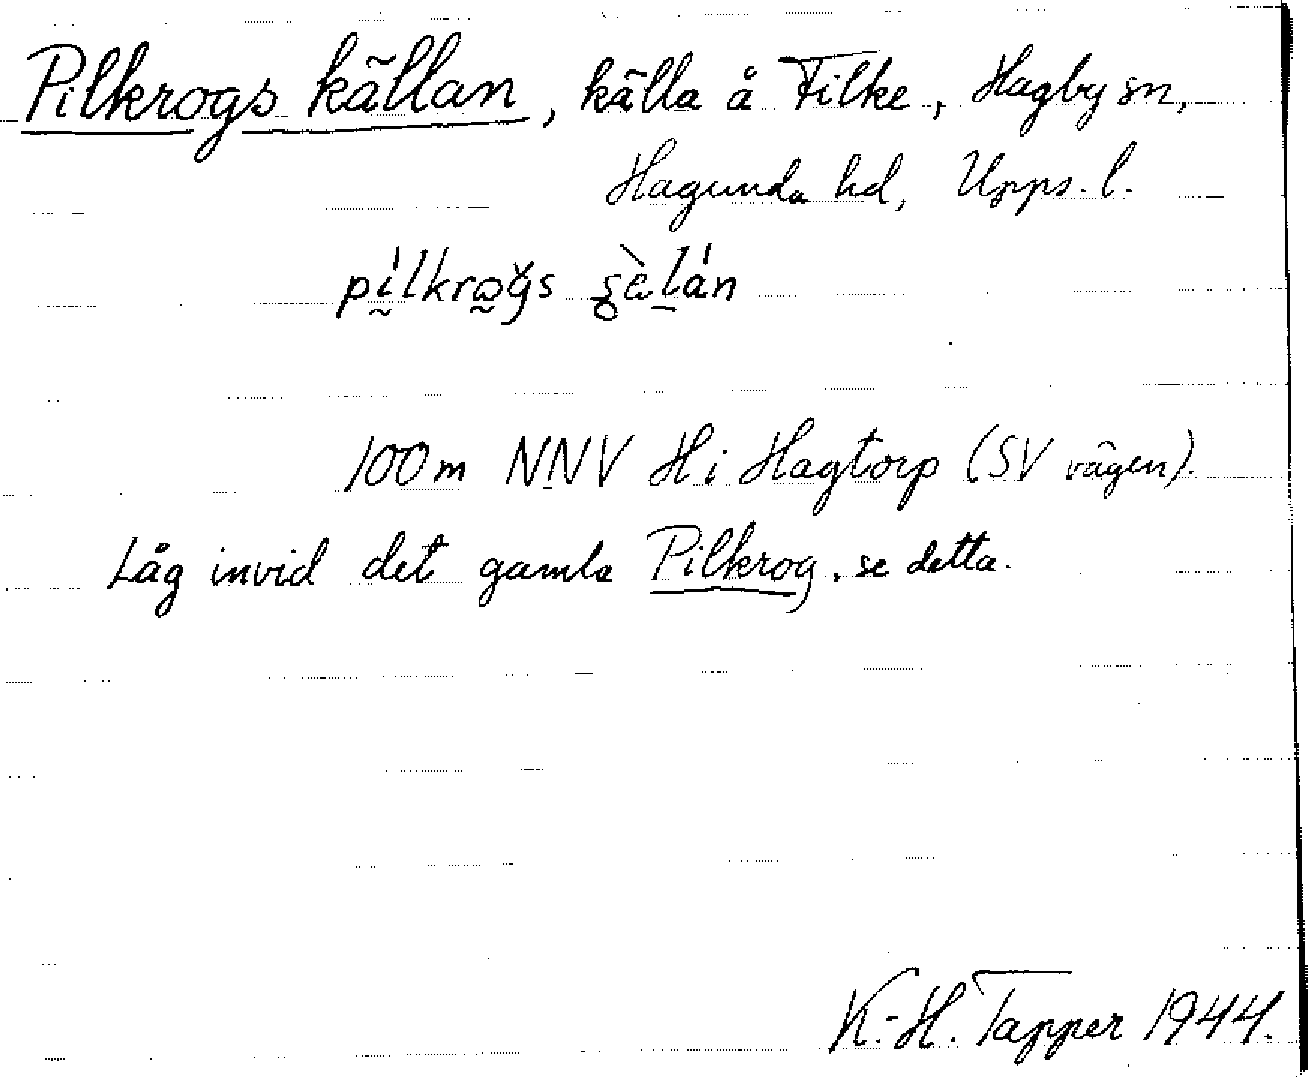 Pilkrogs källan, källa å Filke, Hagby sn,
Hagunda hd, Upps. l.
100 m NNV H i Hagtorp (SV vägen).
Låg invid det gamla Pilkrog, se detta.
K.-H. Tapper 1944.